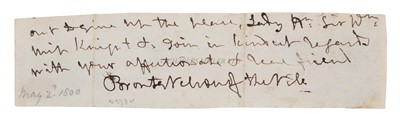 out to give up the place, Lady Hn. Sir Wm
miss Knight & I join in kindest regards
with your affectionate & real friend
Bronte Nelson of the Nile
May 2d 1800